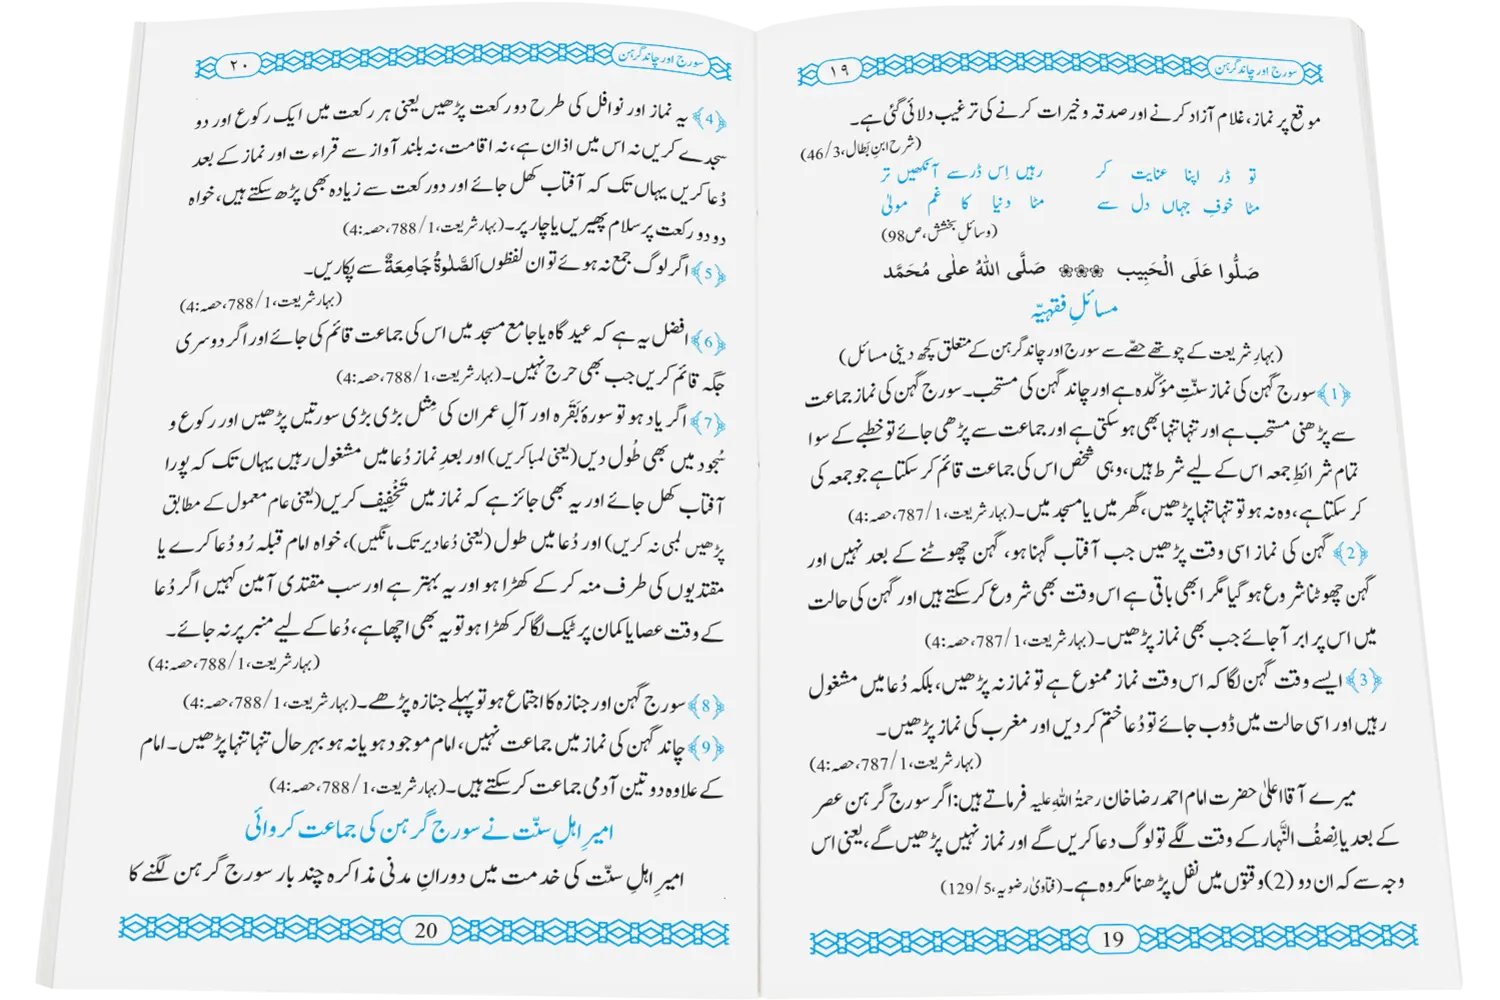 ۱۹ سورج اور چاند گرہن
موقع پر نماز، غلام آزاد کرنے اور صدقہ و خیرات کرنے کی ترغیب دلائی گئی ہے۔
(شرح ابنِ بَطال، 3/46)
تو ڈر اپنا عنایت کر رہیں اِس ڈر سے آنکھیں تر
مٹا خوفِ جہاں دل سے مٹا دنیا کا غم مولیٰ
(وسائلِ بخشش، ص98)
صَلُّوا عَلَى الْحَبِيب صَلَّى اللهُ عَلٰى مُحَمَّد
مسائلِ فقہیّہ
(بہارِ شریعت کے چوتھے حصّے سے سورج اور چاند گرہن کے متعلق کچھ دینی مسائل)
﴿1﴾ سورج گہن کی نماز سنّتِ مؤکّدہ ہے اور چاند گہن کی مستحب۔ سورج گہن کی نماز جماعت
سے پڑھنی مستحب ہے اور تنہا تنہا بھی ہو سکتی ہے اور جماعت سے پڑھی جائے تو خطبے کے سوا
تمام شرائطِ جمعہ اس کے لیے شرط ہیں، وہی شخص اس کی جماعت قائم کر سکتا ہے جو جمعہ کی
کر سکتا ہے، وہ نہ ہو تو تنہا تنہا پڑھیں، گھر میں یا مسجد میں۔ (بہار شریعت، 1/787، حصہ:4)
﴿2﴾ گہن کی نماز اسی وقت پڑھیں جب آفتاب گہنا ہو، گہن چھوٹنے کے بعد نہیں اور
گہن چھوٹنا شروع ہو گیا مگر ابھی باقی ہے اس وقت بھی شروع کر سکتے ہیں اور گہن کی حالت
میں اس پر ابر آ جائے جب بھی نماز پڑھیں۔ (بہار شریعت، 1/787، حصہ:4)
﴿3﴾ ایسے وقت گہن لگا کہ اس وقت نماز ممنوع ہے تو نماز نہ پڑھیں، بلکہ دُعا میں مشغول
رہیں اور اسی حالت میں ڈوب جائے تو دُعا ختم کر دیں اور مغرب کی نماز پڑھیں۔
(بہار شریعت، 1/787، حصہ:4)
میرے آقا اعلیٰ حضرت امام احمد رضا خان رحمۃُ اللہِ علیہ فرماتے ہیں: اگر سورج گرہن عصر
کے بعد یا نِصفُ النَّہار کے وقت لگے تو لوگ دعا کریں گے اور نماز نہیں پڑھیں گے، یعنی اس
وجہ سے کہ ان دو (2) وقتوں میں نفل پڑھنا مکروہ ہے۔ (فتاویٰ رضویہ، 5/129)
19
۲۰ سورج اور چاند گرہن
﴿4﴾ یہ نماز اور نوافل کی طرح دو رکعت پڑھیں یعنی ہر رکعت میں ایک رکوع اور دو
سجدے کریں نہ اس میں اذان ہے، نہ اقامت، نہ بلند آواز سے قراءت اور نماز کے بعد
دُعا کریں یہاں تک کہ آفتاب کھل جائے اور دو رکعت سے زیادہ بھی پڑھ سکتے ہیں، خواہ
دو دو رکعت پر سلام پھیریں یا چار پر۔ (بہار شریعت، 1/788، حصہ:4)
﴿5﴾ اگر لوگ جمع نہ ہوئے تو ان لفظوں اَلصَّلٰوةُ جَامِعَةٌ سے پکاریں۔
(بہار شریعت، 1/788، حصہ:4)
﴿6﴾ افضل یہ ہے کہ عید گاہ یا جامع مسجد میں اس کی جماعت قائم کی جائے اور اگر دوسری
جگہ قائم کریں جب بھی حرج نہیں۔ (بہار شریعت، 1/788، حصہ:4)
﴿7﴾ اگر یاد ہو تو سورۂ بَقَرہ اور آلِ عمران کی مِثل بڑی بڑی سورتیں پڑھیں اور رکوع و
سُجود میں بھی طُول دیں (یعنی لمبا کریں) اور بعدِ نماز دُعا میں مشغول رہیں یہاں تک کہ پورا
آفتاب کھل جائے اور یہ بھی جائز ہے کہ نماز میں تَخْفِیف کریں (یعنی عام معمول کے مطابق
پڑھیں لمبی نہ کریں) اور دُعا میں طول (یعنی دُعا دیر تک مانگیں)، خواہ امام قبلہ رُو دُعا کرے یا
مقتدیوں کی طرف منہ کر کے کھڑا ہو اور یہ بہتر ہے اور سب مقتدی آمین کہیں اگر دُعا
کے وقت عصا یا کمان پر ٹیک لگا کر کھڑا ہو تو یہ بھی اچھا ہے، دُعا کے لیے منبر پر نہ جائے۔
(بہار شریعت، 1/788، حصہ:4)
﴿8﴾ سورج گہن اور جنازہ کا اجتماع ہو تو پہلے جنازہ پڑھے۔ (بہار شریعت، 1/788، حصہ:4)
﴿9﴾ چاند گہن کی نماز میں جماعت نہیں، امام موجود ہو یا نہ ہو بہر حال تنہا تنہا پڑھیں۔ امام
کے علاوہ دو تین آدمی جماعت کر سکتے ہیں۔ (بہار شریعت، 1/788، حصہ:4)
امیرِ اہلِ سنّت نے سورج گرہن کی جماعت کروائی
امیرِ اہلِ سنّت کی خدمت میں دورانِ مدنی مذاکرہ چند بار سورج گرہن لگنے کا
20